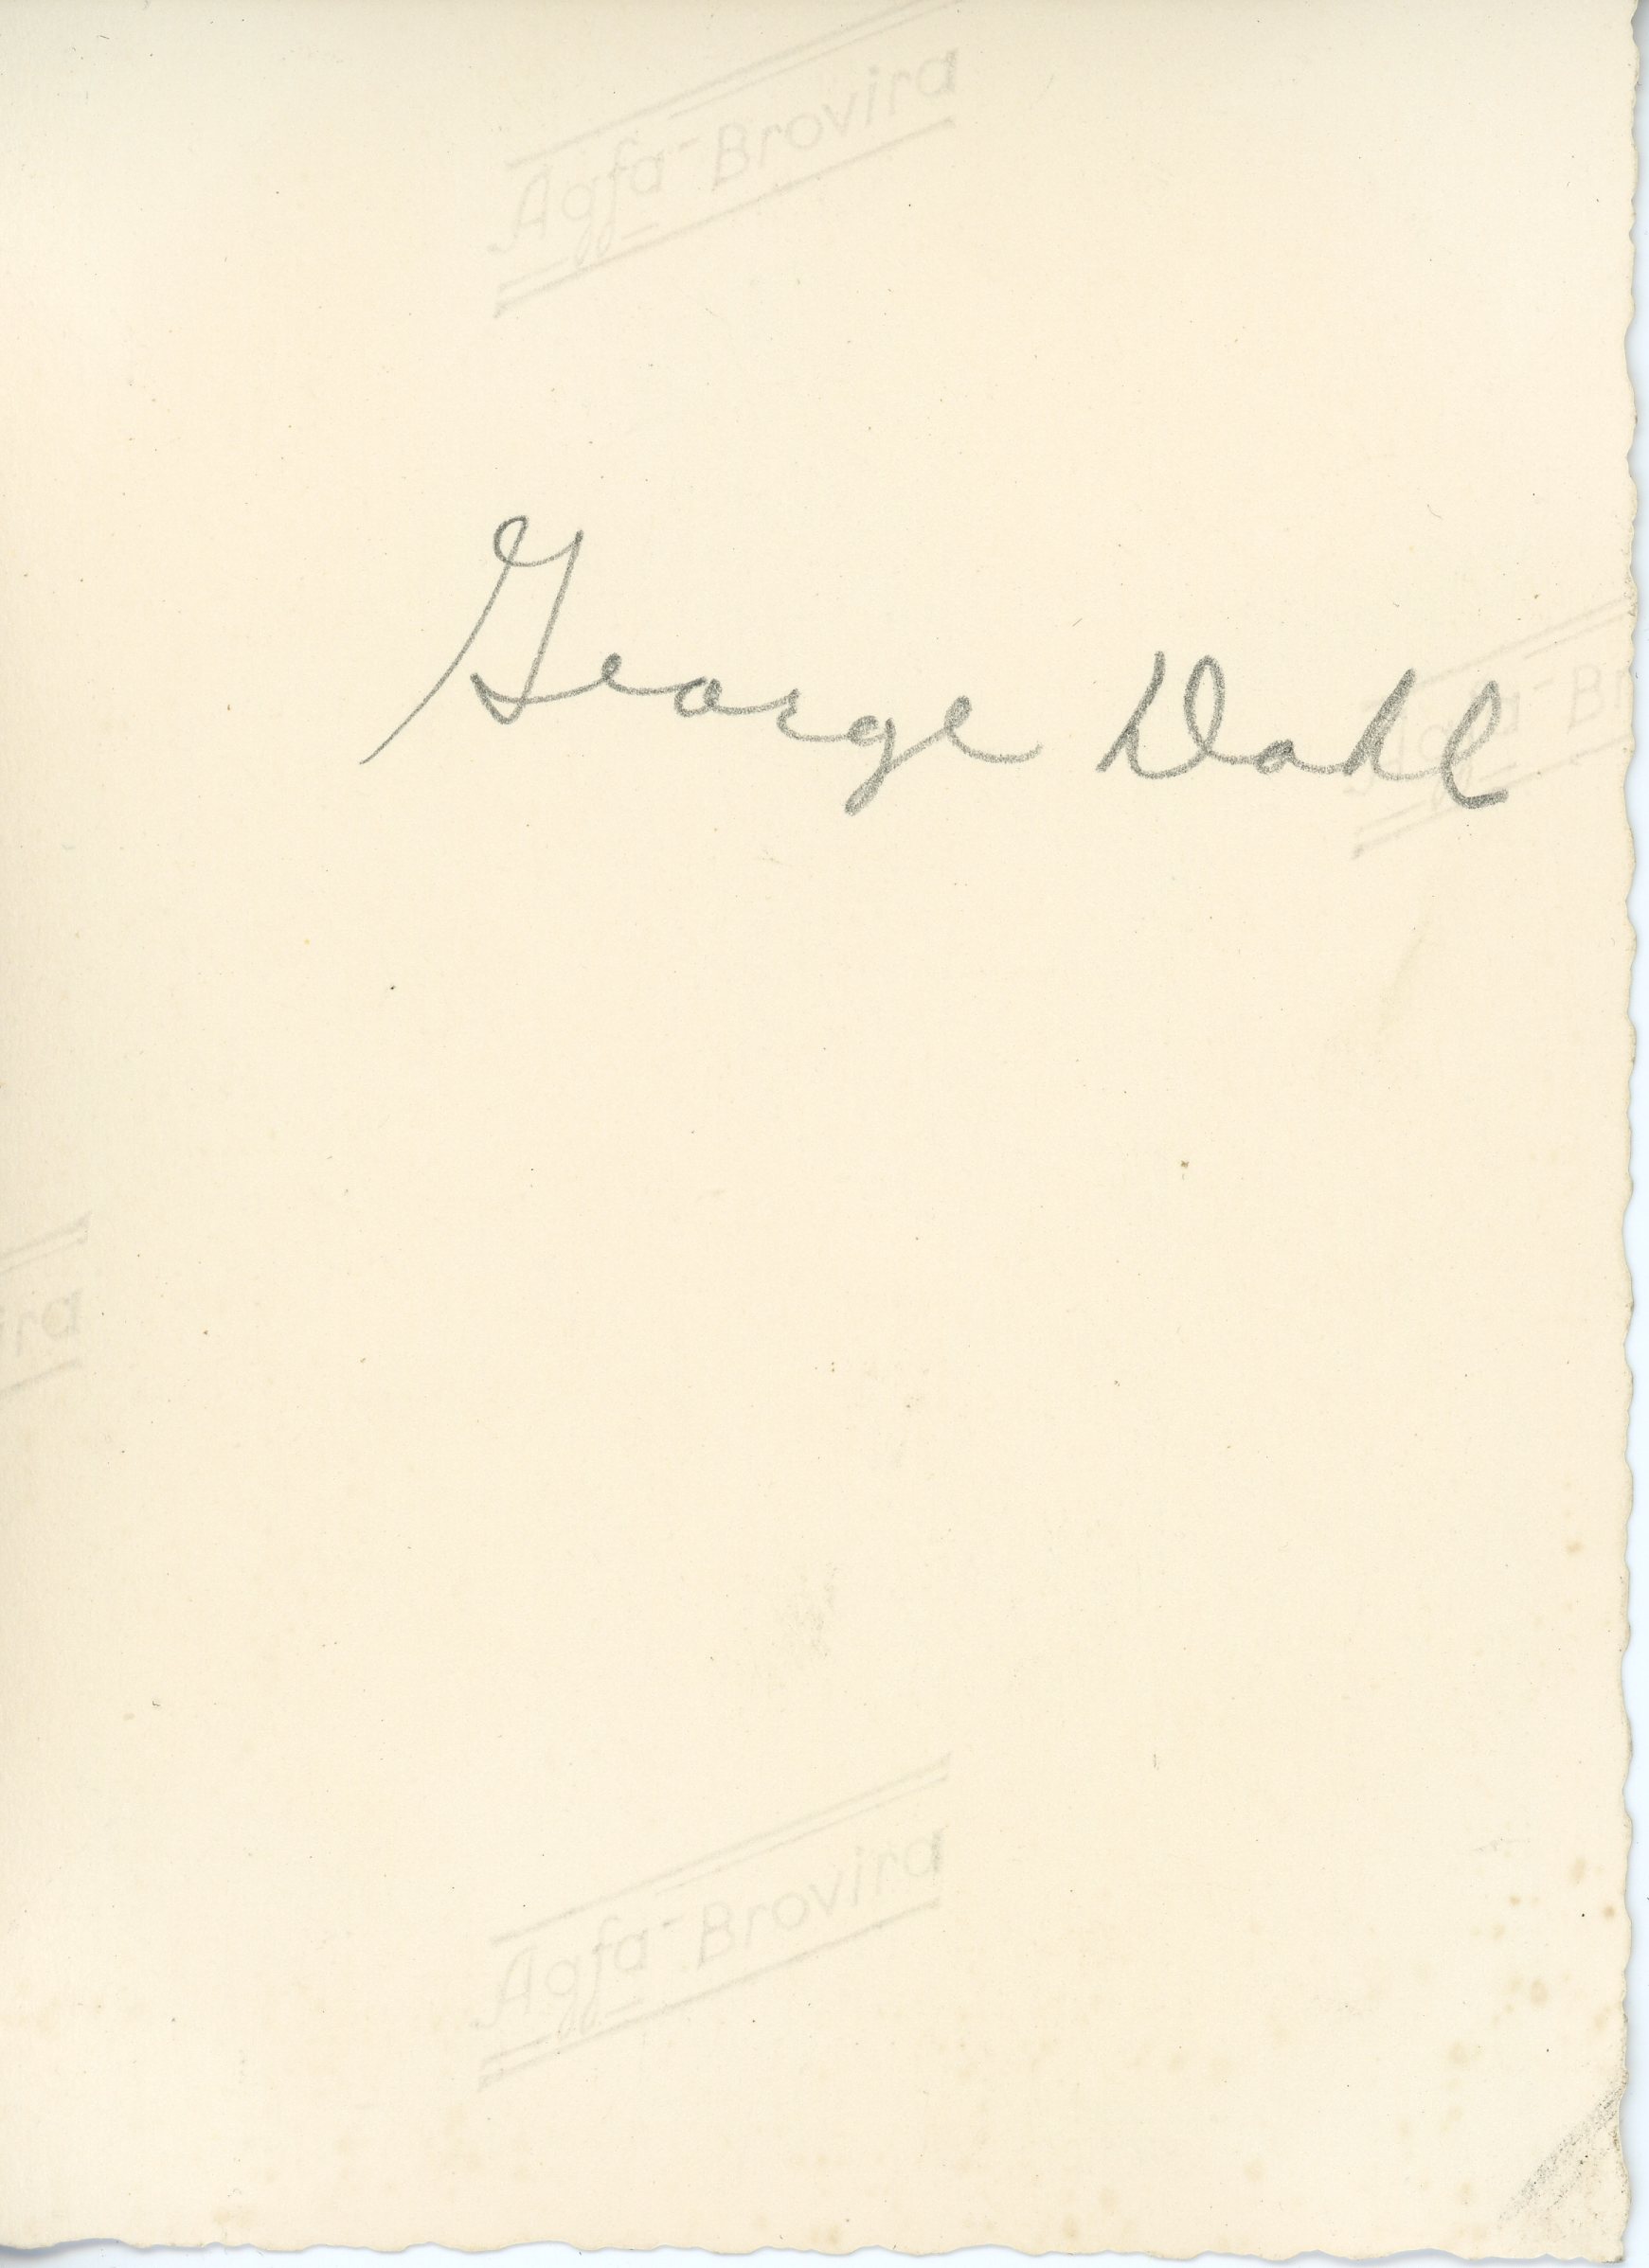 Agfa-Brovira
George Dahl
Agfa-Br
ira
Agfa-Brovira